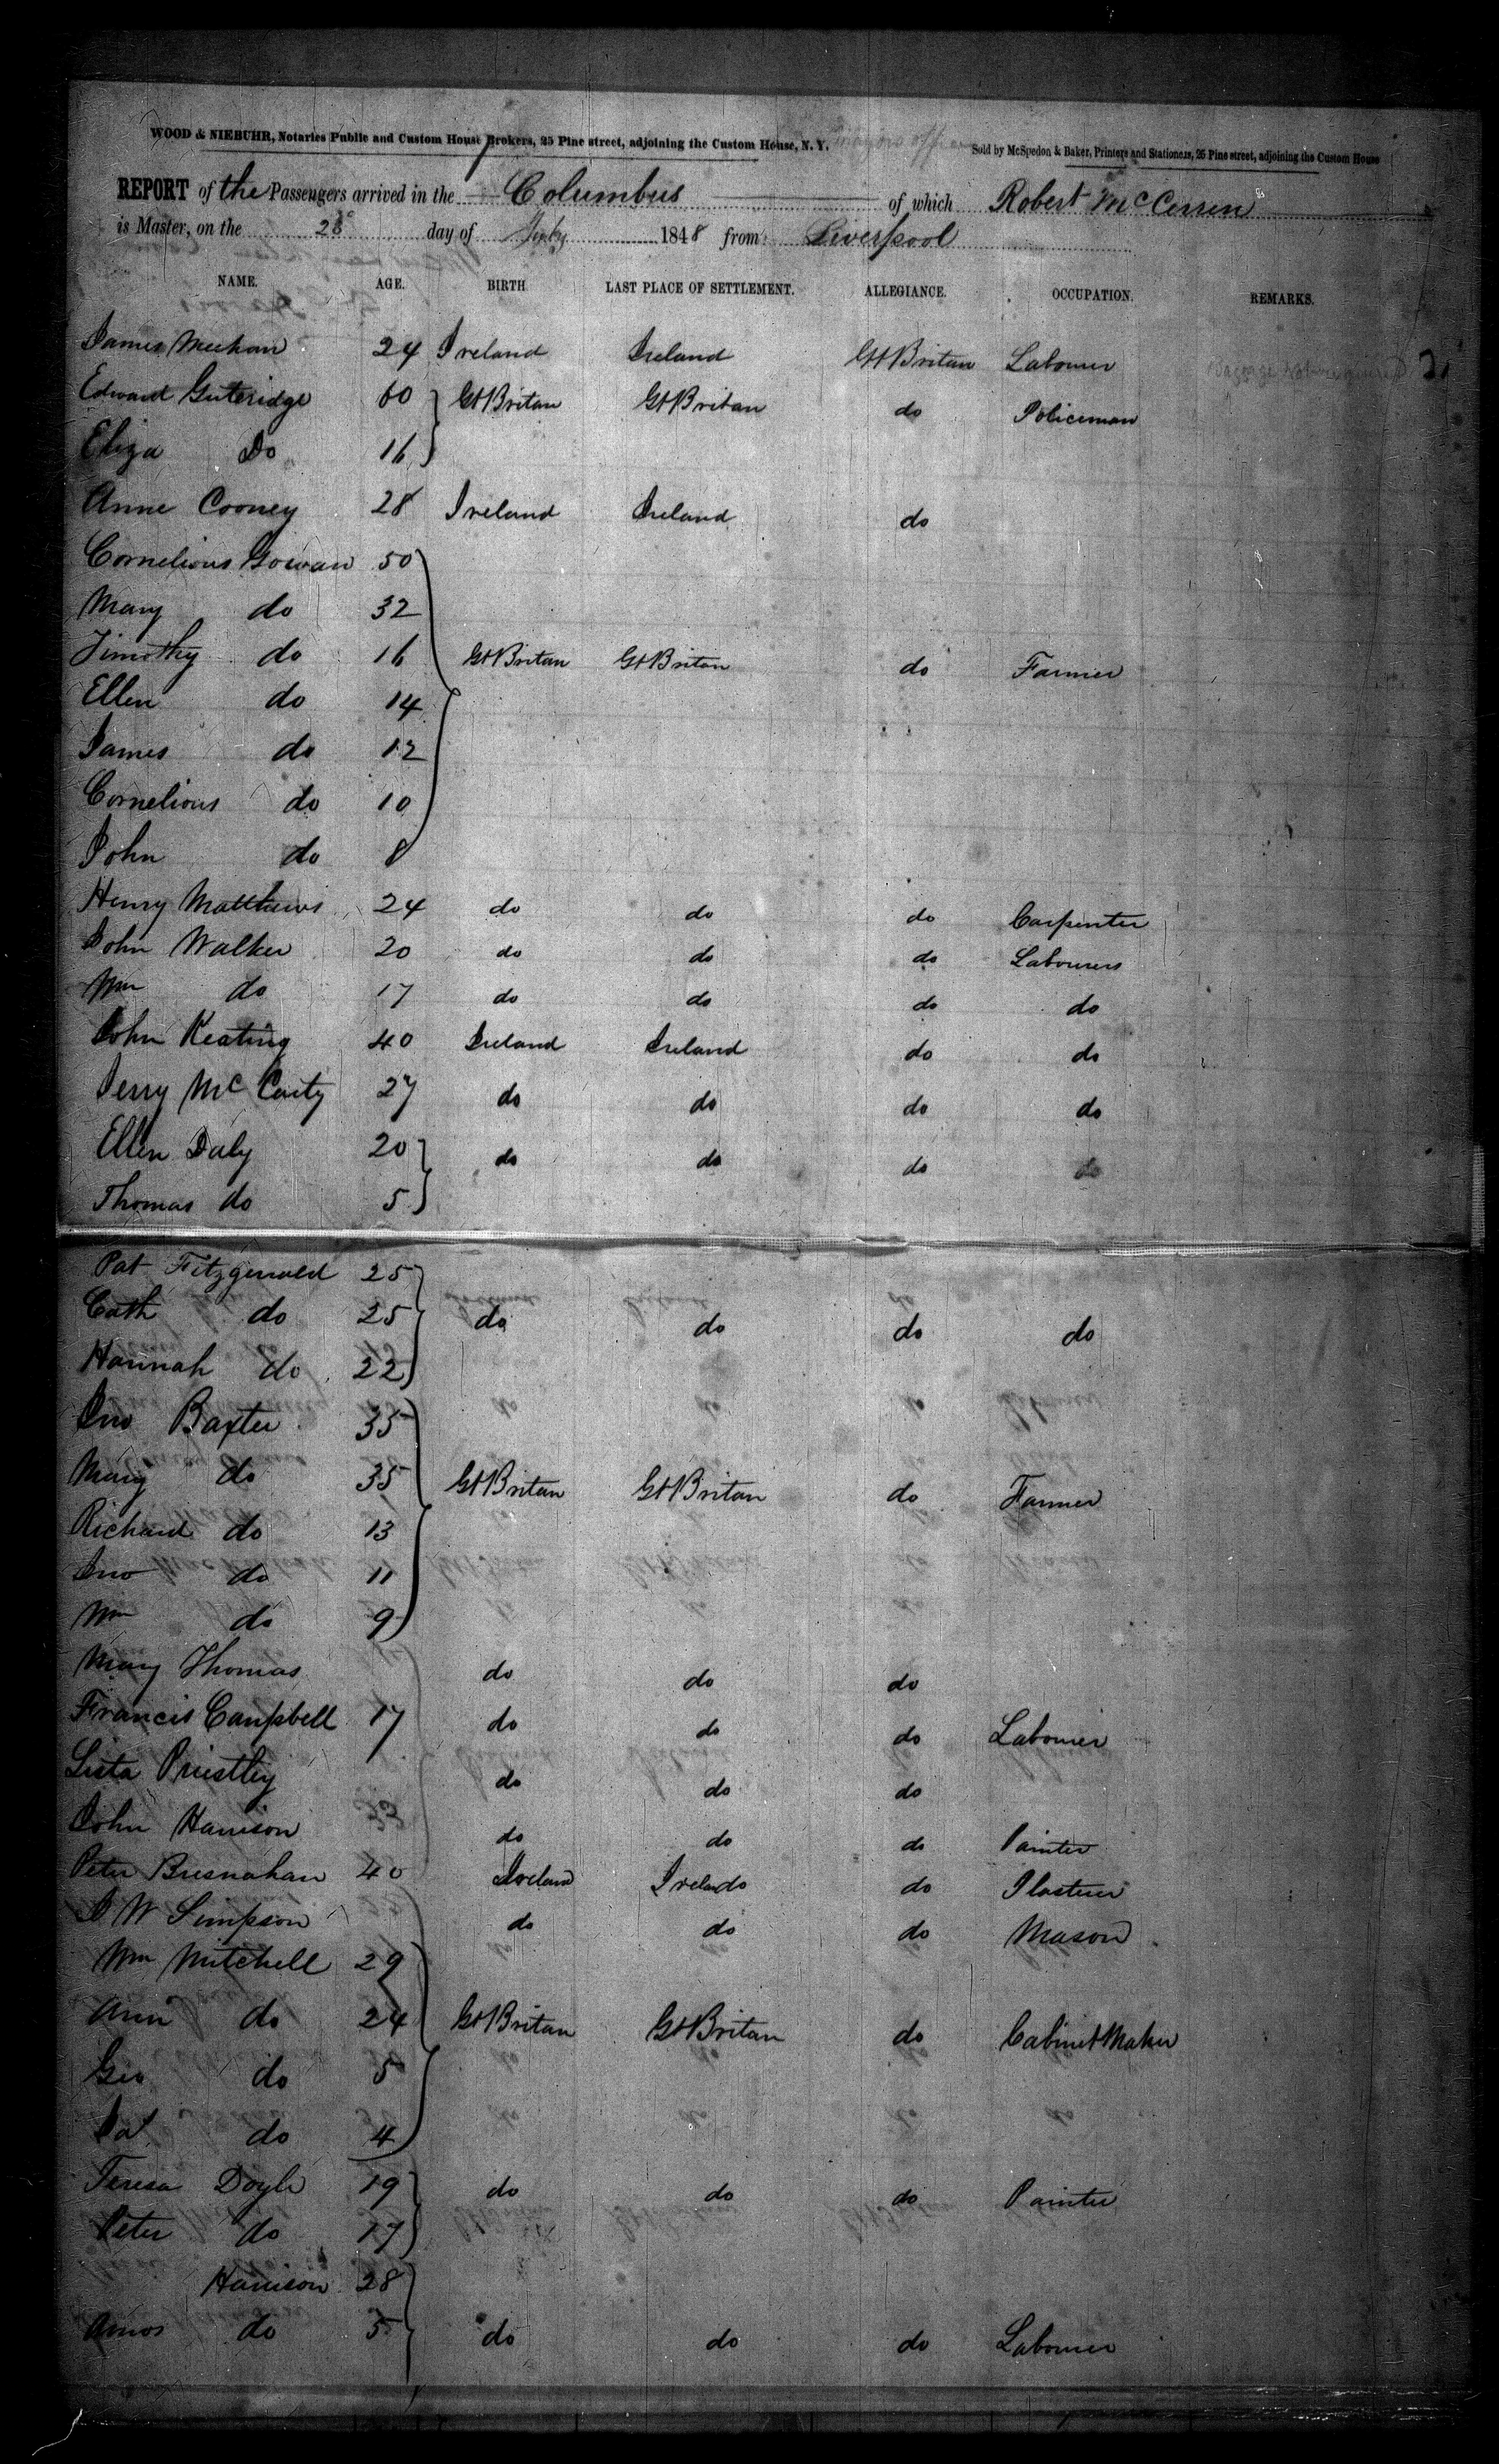 WOOD & NIEBUHR, Notaries Public and Custom House Brokers, 25 Pine street, adjoining the Custom House, N. Y.
Sold by McSpedon & Baker, Printers and Stationers, 25 Pine street, adjoining the Custom House
REPORT of the Passengers arrived in the Columbus of which Robert McCerren
is Master, on the 28 day of 1848 from Liverpool
NAME. AGE. BIRTH LAST PLACE OF SETTLEMENT. ALLEGIANCE. OCCUPATION. REMARKS.
James Meehan 24 Ireland Ireland Gt Britan Labourer
Edward Guteridge 60 Gt Britan Gt Britan do Policeman
Eliza Do 16
Anne Cooney 28 Ireland Ireland do
Cornelious Gowan 50
Mary do 32
Timothy do 16 Gt Britan Gt Britan do Farmer
Ellen do 14
James do 12
Cornelious do 10
John do 8
Henry Matthews 24 do do do Carpenter
John Walker 20 do do do Labourers
Wm do 17 do do do do
John Keating 40 Ireland Ireland do do
Jerry McCarty 27 do do do do
Ellen Daly 20 do do do do
Thomas do 5
Pat Fitzgerald 25
Cath do 25 do do do do
Hannah do 22
Jno Baxter 35
Mary do 35 Gt Britan Gt Britan do Farmer
Richard do 13
Jno do 11
Wm do 9
Mary Thomas do do do
Francis Campbell 17 do do do Labourer
Priestley do do do
John Harrison do do do Painter
Peter Bresnahan 40 Ireland Ireland do Plasterer
J W Simpson do do do Mason
Wm Mitchell 29
Ann do 24 Gt Britan Gt Britan do Cabinet Maker
Geo do 5
do 4
Teresa Doyle 19 do do do Painter
Peter do 17
Harrison 28
Amos do 5 do do do Labourer